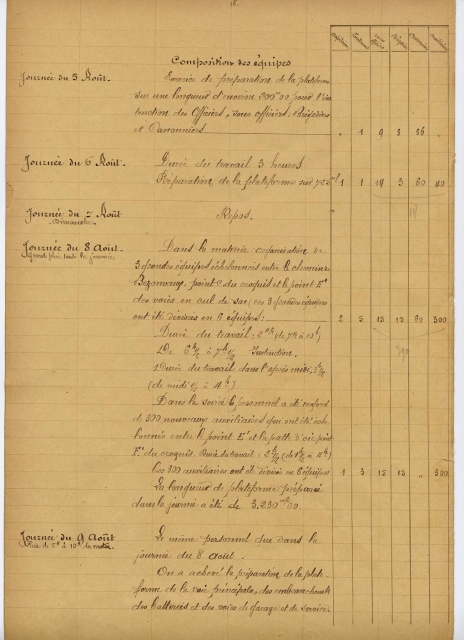 Composition des équipes
Journée du 5 Août.
Exercice de préparation de la plateforme
sur une longueur d'environ 300m00 pour l'ins
truction des Officiers, sous officiers, Brigadiers
et Canonniers.
" 1 9 3 36 "
Journée du 6 Août.
Durée du travail 3 heures
Préparation de la plateforme sur 725m 1 1 14 5 60 40
Journée du 7 Août
Dimanche
Repos.
Journée du 8 Août.
Grand pluie toute la journée
Dans la matinée organisation de
3 grandes équipes échelonnées entre le chemin
Bezonvaux, point C du croquis et le point E'
des voies en cul de sac; ces 3 grandes équipes
ont été divisées en 6 équipes: 2 5 15 15 80 300
Durée du travail: (de 7h à 10h)
De 6h½ à 7h½ Instruction.
Durée du travail dans l'après midi,
(de midi ½ à 4h)
Dans la soirée le personnel a été
de 300 nouveaux auxiliaires qui ont été éch
lonnés entre le point E' et la patte d'oie
E' du croquis. Durée du travail:
Ces 300 auxiliaires ont été divisés en 6 équipes 1 3 15 15 " 300
La longueur de plateforme préparée
dans la journée a été de 3.230m00.
Journée du 9 Août
Le même personnel que dans la
journée du 8 août.
On a achevé la préparation de la plate
forme de la voie principale, des embranchements
des batteries et des voies de garage et de service.